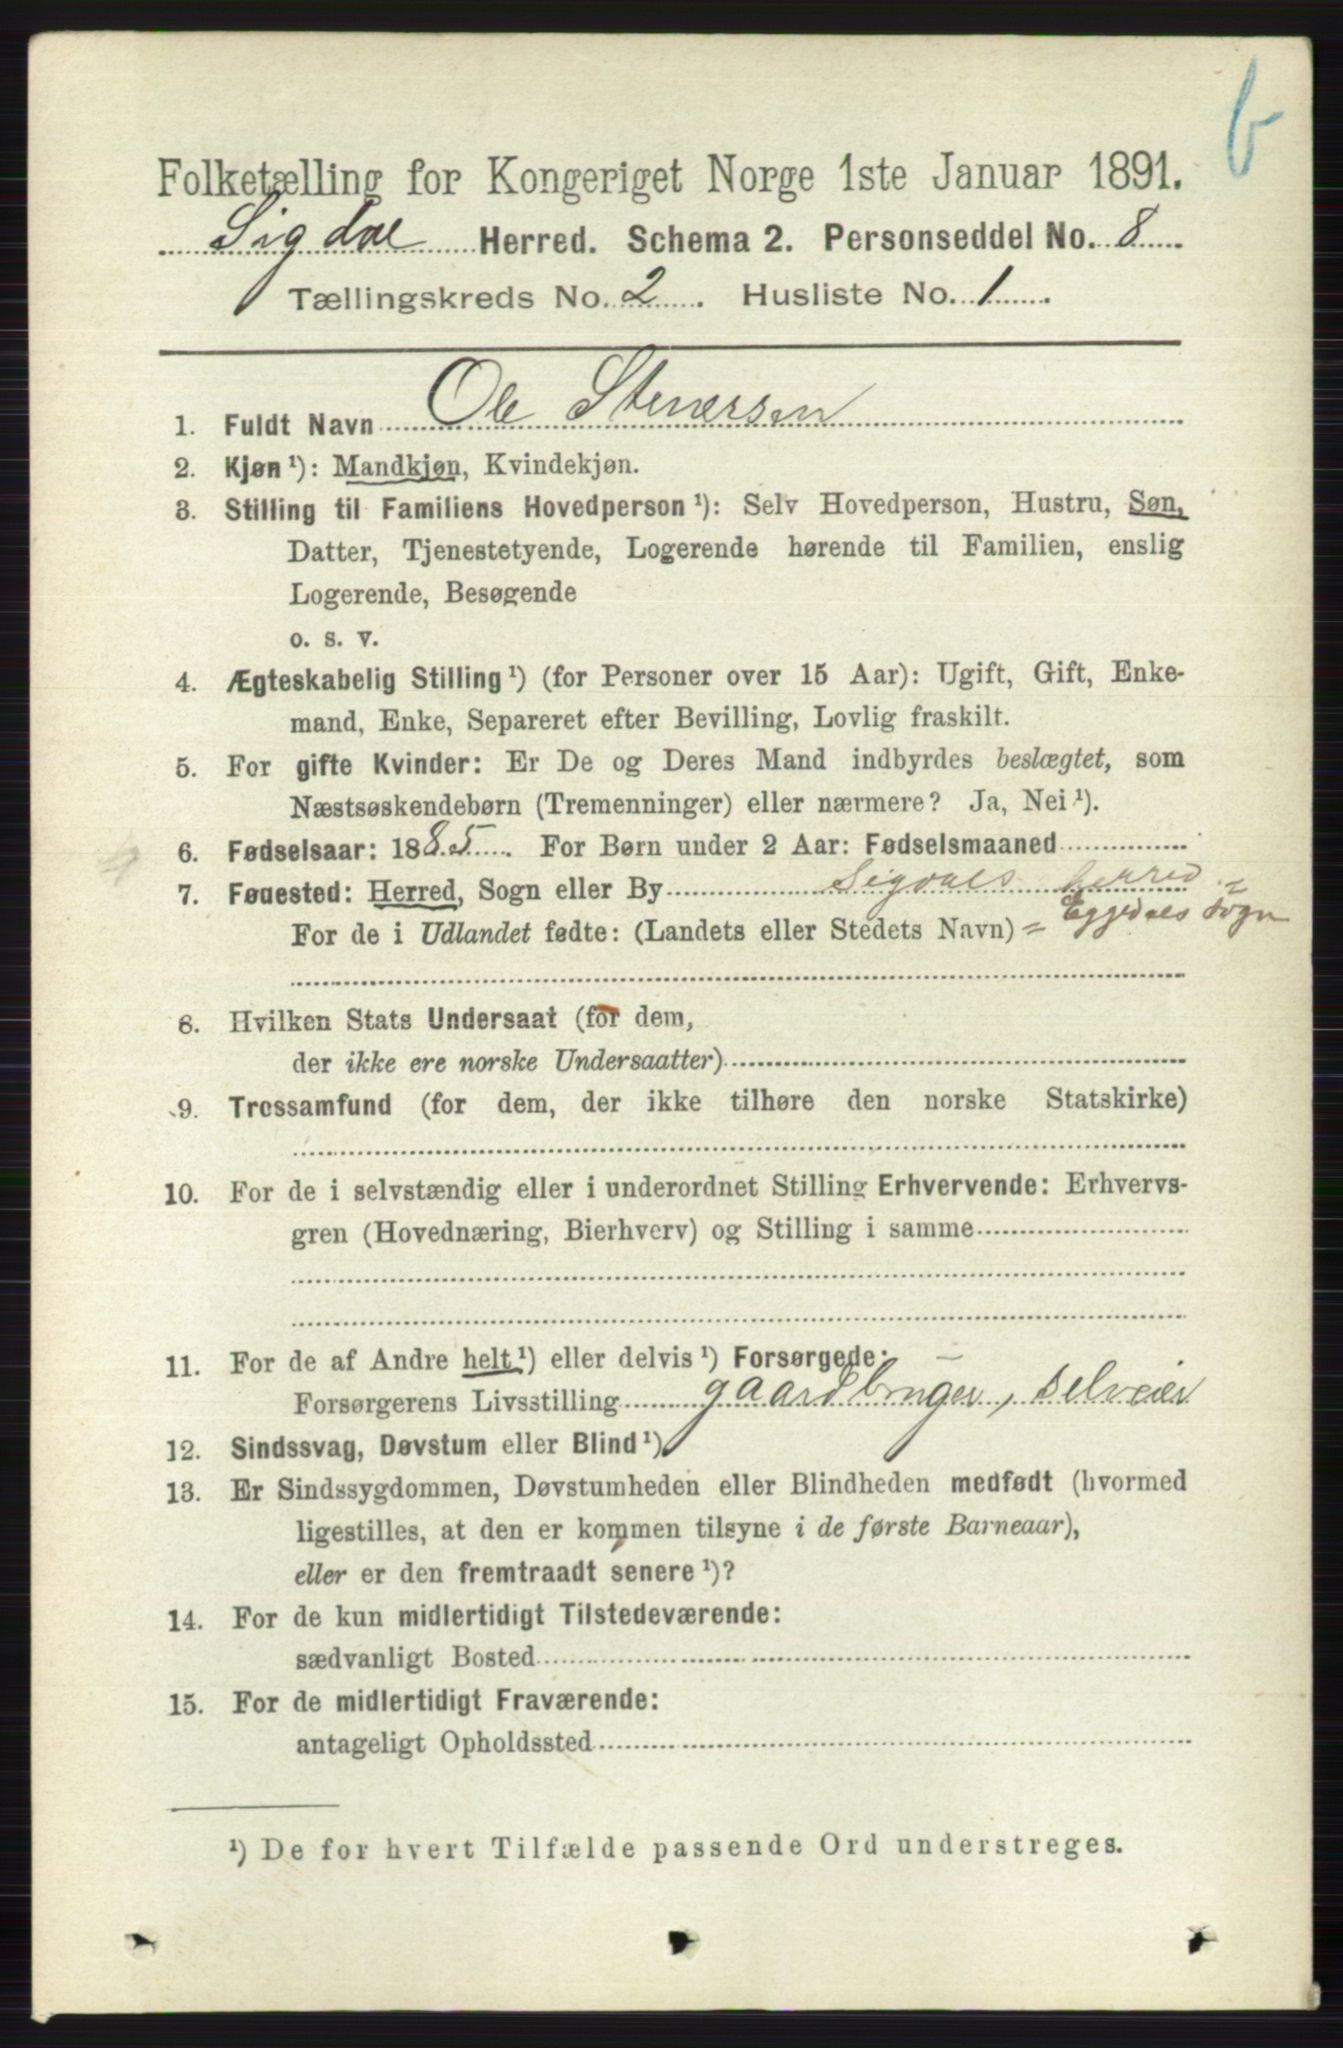 b
Folketælling for Kongeriget Norge 1ste Januar 1891.
Sigdal Herred. Schema 2. Personseddel No. 8
Tællingskreds No. 2. Husliste No. 1.
1. Fuldt Navn Ole Stenersen
2. Kjøn ¹): Mandkjøn, Kvindekjøn.
3. Stilling til Familiens Hovedperson ¹): Selv Hovedperson, Hustru, Søn,
Datter, Tjenestetyende, Logerende hørende til Familien, enslig
Logerende, Besøgende
o. s. v.
4. Ægteskabelig Stilling ¹) (for Personer over 15 Aar): Ugift, Gift, Enke-
mand, Enke, Separeret efter Bevilling, Lovlig fraskilt.
5. For gifte Kvinder: Er De og Deres Mand indbyrdes beslægtet, som
Næstsøskendebørn (Tremenninger) eller nærmere? Ja, Nei ¹).
6. Fødselsaar: 1885. For Børn under 2 Aar: Fødselsmaaned
7. Fødested: Herred, Sogn eller By Sigdals herred =
For de i Udlandet fødte: (Landets eller Stedets Navn) = Eggedals Sogn
8. Hvilken Stats Undersaat (for dem,
der ikke ere norske Undersaatter)
9. Trossamfund (for dem, der ikke tilhøre den norske Statskirke)
10. For de i selvstændig eller i underordnet Stilling Erhvervende: Erhvervs-
gren (Hovednæring, Bierhverv) og Stilling i samme
11. For de af Andre helt ¹) eller delvis ¹) Forsørgede:
Forsørgerens Livsstilling gaardbruger, selveier
12. Sindssvag, Døvstum eller Blind ¹).
13. Er Sindssygdommen, Døvstumheden eller Blindheden medfødt (hvormed
ligestilles, at den er kommen tilsyne i de første Barneaar),
eller er den fremtraadt senere ¹)?
14. For de kun midlertidigt Tilstedeværende:
sædvanligt Bosted
15. For de midlertidigt Fraværende:
antageligt Opholdssted
¹) De for hvert Tilfælde passende Ord understreges.